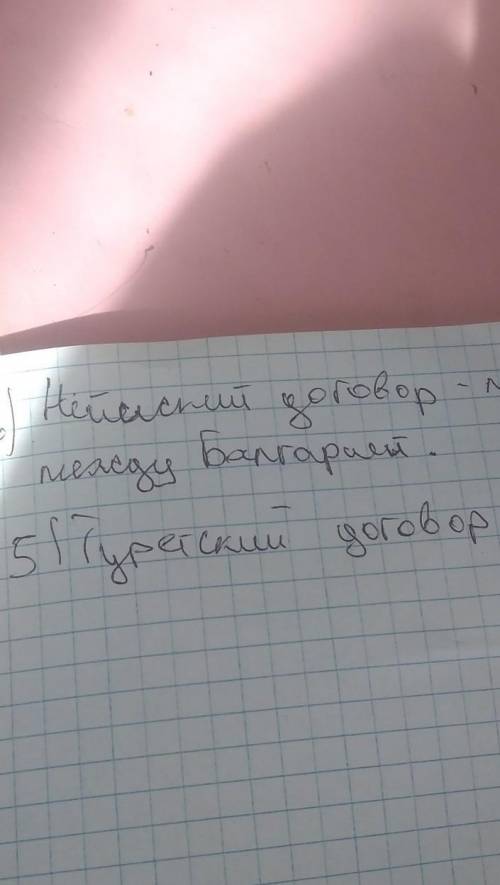 Нейиский договор -
между Балгарией.
5) Туретский договор